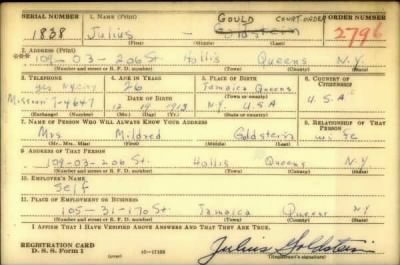 SERIAL NUMBER 1. NAME (Print) GOULD COURT ORDER ORDER NUMBER
1838 Julius - Goldstein 2796
(First) (Middle) (Last)
2. ADDRESS (Print)
109-03-206 St. Hollis Queens N.Y.
(Number and street or R. F. D. number) (Town) (County) (State)
3. TELEPHONE 4. AGE IN YEARS 5. PLACE OF BIRTH 6. COUNTRY OF CITIZENSHIP
26 Jamaica Queens
(Town or county)
DATE OF BIRTH
7-4647 12 19 N.Y. U.S.A U.S.A.
(Mo.) (Day) (Yr.) (State or country)
7. NAME OF PERSON WHO WILL ALWAYS KNOW YOUR ADDRESS 8. RELATIONSHIP OF THAT PERSON
Mrs Mildred Goldstein wife
(Mr., Mrs., Miss) (First) (Middle) (Last)
9. ADDRESS OF THAT PERSON
109-03-206 St. Hollis Queens N.Y
(Number and street or R. F. D. number) (Town) (County) (State)
10. EMPLOYER'S NAME
Self
11. PLACE OF EMPLOYMENT OR BUSINESS
105-31-170 St. Jamaica Queens N.Y
(Number and street or R. F. D. number) (Town) (County) (State)
I AFFIRM THAT I HAVE VERIFIED ABOVE ANSWERS AND THAT THEY ARE TRUE.
REGISTRATION CARD
D. S. S. Form 1 (over) Julius Goldstein
(Registrant's signature)